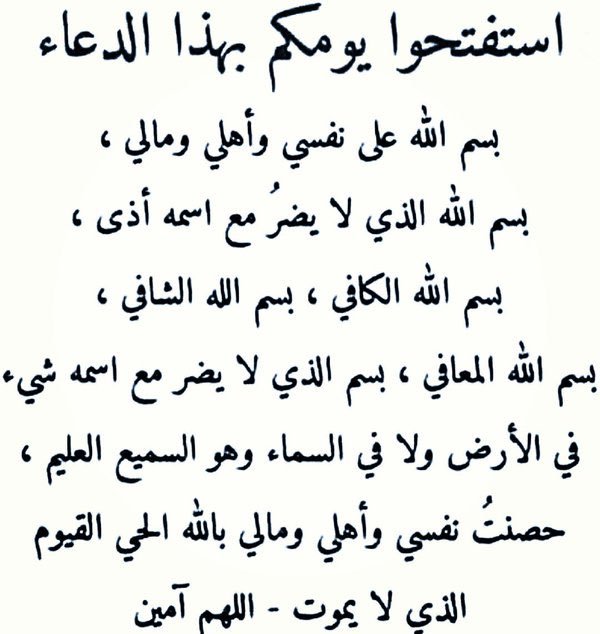 استفتحوا يومكم بهذا الدعاء
بسم الله على نفسي وأهلي ومالي ،
بسم الله الذي لا يضرُ مع اسمه أذى ،
بسم الله الكافي ، بسم الله الشافي ،
بسم الله المعافي ، بسم الذي لا يضر مع اسمه شيء
في الأرض ولا في السماء وهو السميع العليم ،
حصنتُ نفسي وأهلي ومالي بالله الحي القيوم
الذي لا يموت - اللهم آمين